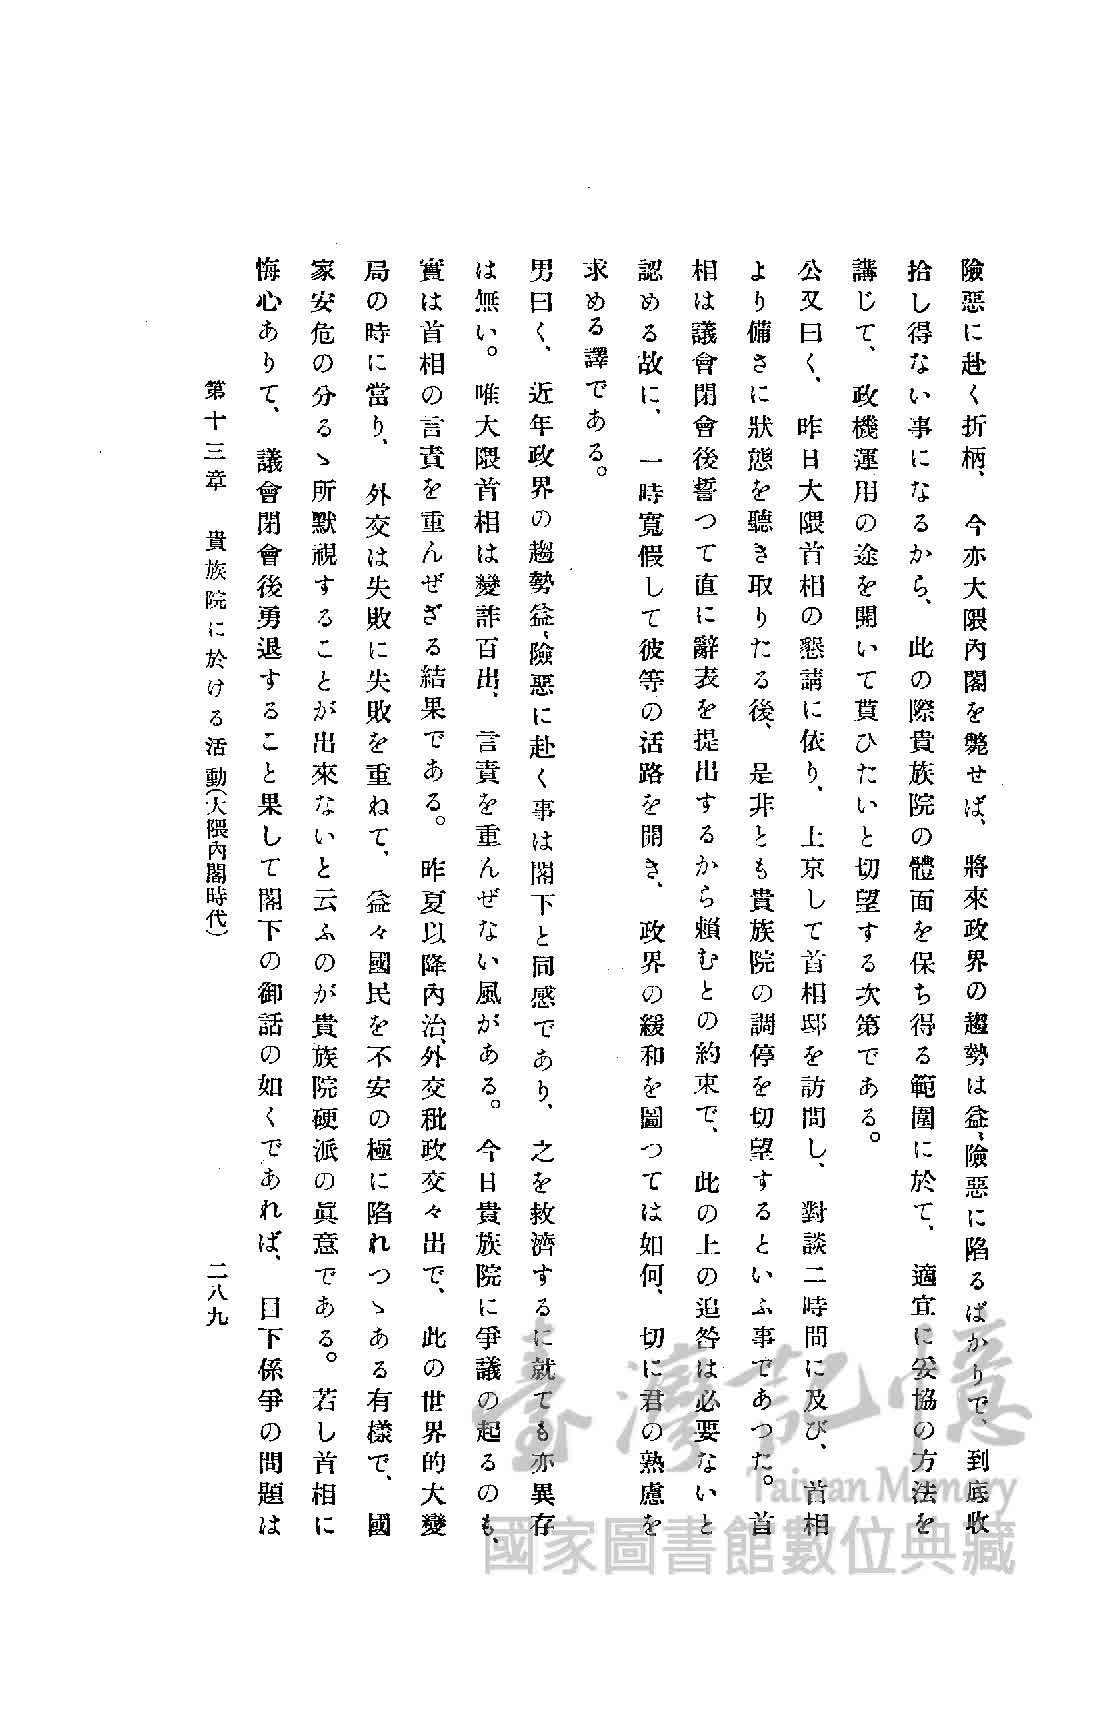 險惡に赴く折柄、今亦大隈內閣を斃せば、將來政界の趨勢は益〻險惡に陷るばかりで、到底收
拾し得ない事になるから、此の際貴族院の體面を保ち得る範圍に於て、適宜に妥協の方法を
講じて、政機運用の途を開いて貰ひたいと切望する次第である。
公又曰く、昨日大隈首相の懇請に依り、上京して首相邸を訪問し、對談二時間に及び、首相
より備さに狀態を聽き取りたる後、是非とも貴族院の調停を切望するといふ事であつた。首
相は議會閉會後誓つて直に辭表を提出するから賴むとの約束で、此の上の追咎は必要ないと
認める故に、一時寬假して彼等の活路を開き、政界の緩和を圖つては如何、切に君の熟慮を
求める譯である。
男曰く、近年政界の趨勢益〻險惡に赴く事は閣下と同感であり、之を救濟するに就ても亦異存
は無い。唯大隈首相は變詐百出、言責を重んぜない風がある。今日貴族院に爭議の起るのも、
實は首相の言責を重んぜざる結果である。昨夏以降內治、外交秕政交々出で、此の世界的大變
局の時に當り、外交は失敗に失敗を重ねて、益々國民を不安の極に陷れつゝある有樣で、國
家安危の分るゝ所默視することが出來ないと云ふのが貴族院硬派の眞意である。若し首相に
悔心ありて、議會閉會後勇退すること果して閣下の御話の如くであれば、目下係爭の問題は
第十三章 貴族院に於ける活動(大隈內閣時代)
二八九
臺灣記憶
Taiwan Memory
國家圖書館數位典藏